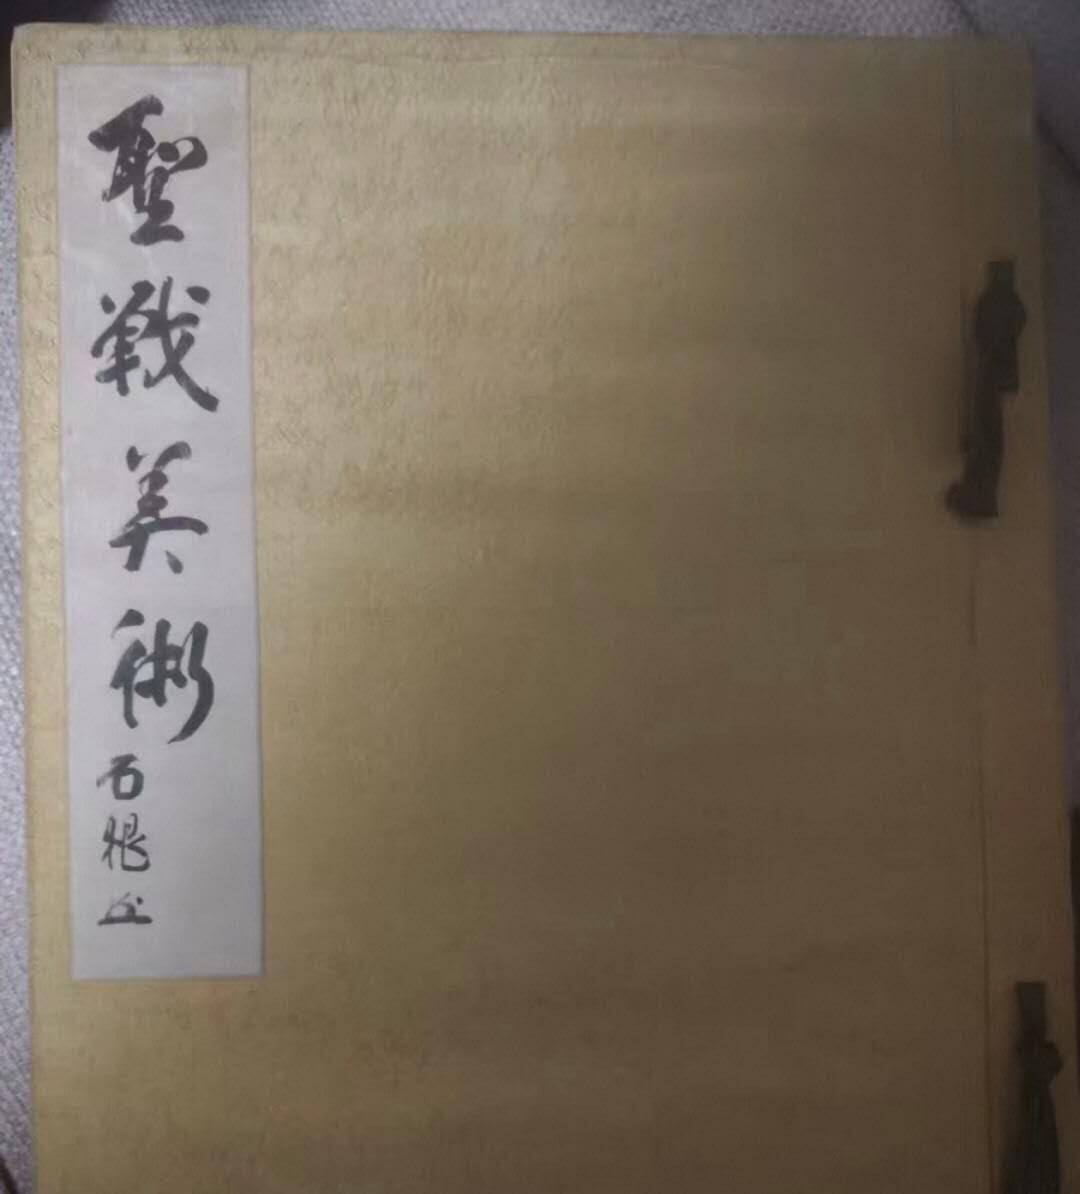 聖戦美術
石根